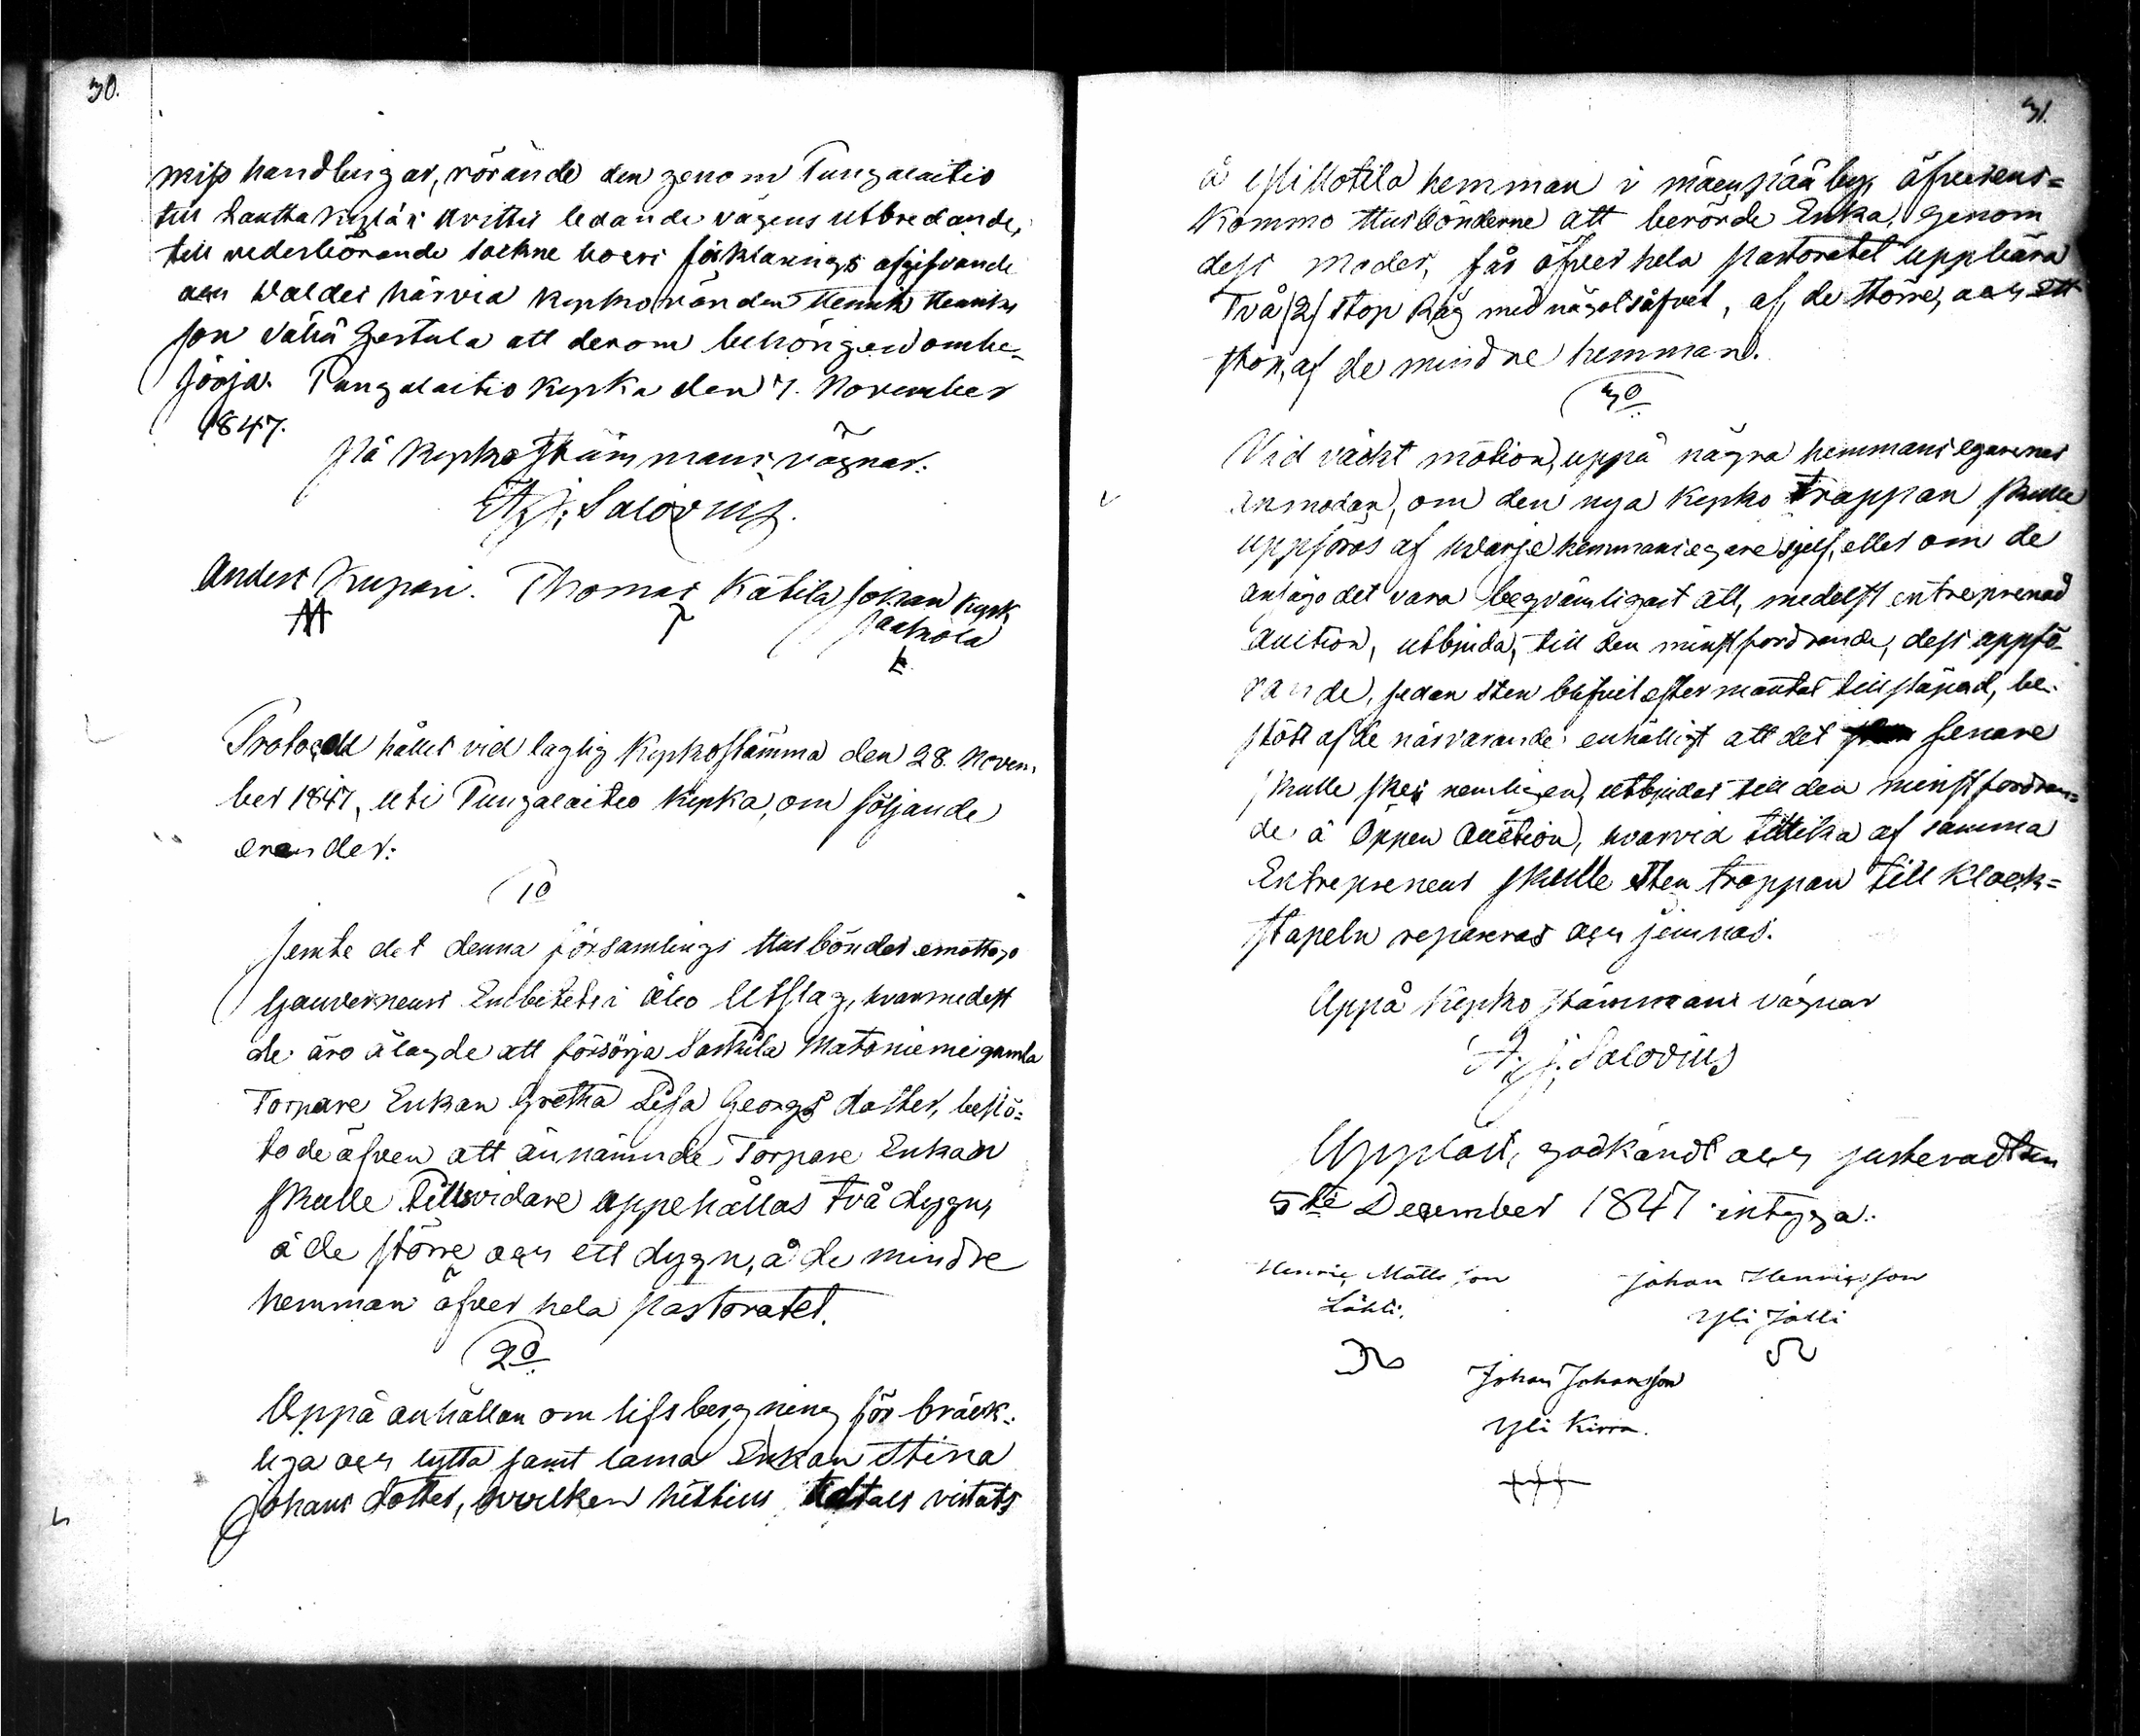 30.
miss handlingar, rörande den genom Pungalaitio
till Lauttakylä i Huittis ledande vägens utbredande,
till vederbörande Sockne boers förklarings afgifvande
och Waldes härvid Kyrkovärden Henrik Henriks
son Vähä Hertula att derom behörigen ombe-
sörja. Pungalaitio Kyrka den 7. November
1847.
På Kyrkostämmans vägnar:
A. J. Salovius.
Anders Krupari. Thomas Kätilä Johan Kyrk
Jaakola
Protocoll hållet vid laglig Kyrkostämma den 28. Novem-
ber 1847, uti Pungalaitio Kyrka, om följande
ärender:
1o
Jemte det denna församlings Husbönder emottogo
Gouverneurs Embetets i Åbo Utslag, hvarmedelst
de äro ålagde att försörja Sarkila Matoniemi gamla
Torpare Enkan Gretha Lisa Georgs dotter, beslö-
to de äfven att annämnde Torpare Enkan
skulle tillsvidare uppehållas två dygn,
å de större och ett dygn, å de mindre
hemman öfver hela pastoratet.
2o
Uppå anhållan om lifsbergning för bräck-
liga och lytta samt lama Enkan Stina
Johans dotter, hvilken hittills tidtals vistats
31.
å Yli Motila hemman i Mäenpää by, öfverens-
kommo Husbönderne att berörde Enka, genom
dess moder, får öfver hela pastoratet uppbära
Två (2) stop Råg med någol såfvel, af de större, och ett
stop, af de mindre hemman.
3o
Vid väckt motion, uppå några hemmansegarenes
anmodan, om den nya Kyrko trappan skulle
uppföras af hvarje hemmansegare sjelf, eller om de
ansågo det vara beqvämligast att, medelst entreprenad
auction, utbjuda, till den minstfordrande, dess uppfö-
rande, sedan sten blifvit efter mantal tillskapad, be-
slöts af de närvarande enhälligt att det senare
skulle ske, nemligen, utbjudas till den minstfordran-
de å Öppen Auction, hvarvid tillika af samma
Entrepreneur skulle sten trappan till Klock-
stapeln repareras och jemnas.
Uppå Kyrko stämmans vägnar
A. J. Salovius
Uppläst, godkändt och justeradt den
5te December 1847 intyga:
Henric Matts son
Lähti.
Johan Henricsson
Yli Jälli
Johan Johansson
Yli Kirra.